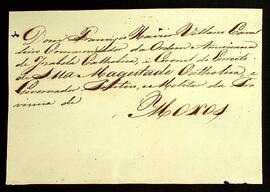 Dom Francisco Xavier Velasco Caval
leiro Commendador da Ordem Americana
de Izabela Catholica, e Coronel do Exercito
de Sua Magestade Catholica, e
Governador Politico, e Militar da Pro
vincia de
MOXOS